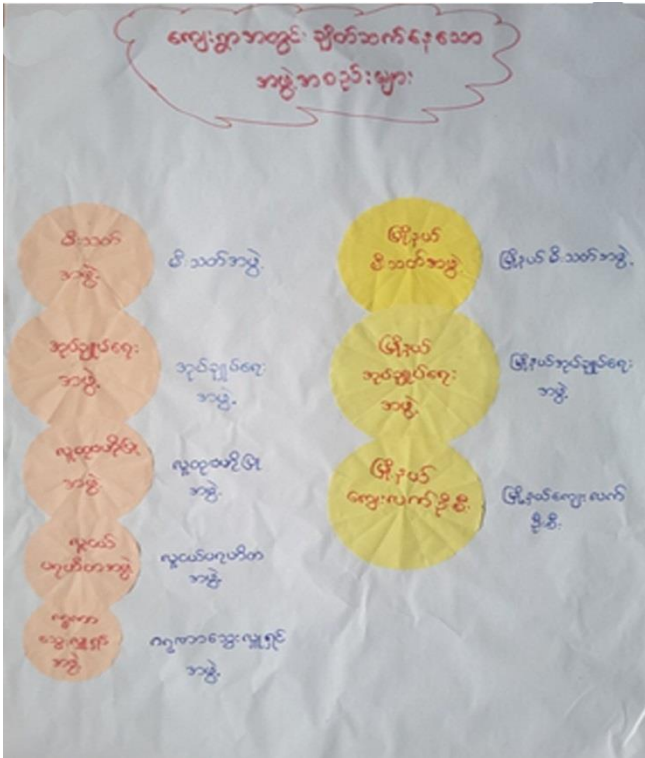 ကျေးရွာအတွင်း ချိတ်ဆက်နေသော
အဖွဲ့အစည်းများ
မီးသတ်
အဖွဲ့
မီးသတ်အဖွဲ့
အုပ်ချုပ်ရေး
အဖွဲ့
အုပ်ချုပ်ရေး
အဖွဲ့
လူထုဗဟိုပြု
အဖွဲ့
လူထုဗဟိုပြု
အဖွဲ့
လူငယ်
ပရဟိတအဖွဲ့
လူငယ်ပရဟိတ
အဖွဲ့
သွေးလှူရှင်
အဖွဲ့
ဂရုဏာသွေးလှူရှင်
အဖွဲ့
မြို့နယ်
မီးသတ်အဖွဲ့
မြို့နယ်မီးသတ်အဖွဲ့
မြို့နယ်
အုပ်ချုပ်ရေး
အဖွဲ့
မြို့နယ်အုပ်ချုပ်ရေး
အဖွဲ့
မြို့နယ်
ကျေးလက်ဦးစီး
မြို့နယ်ကျေးလက်
ဦးစီး